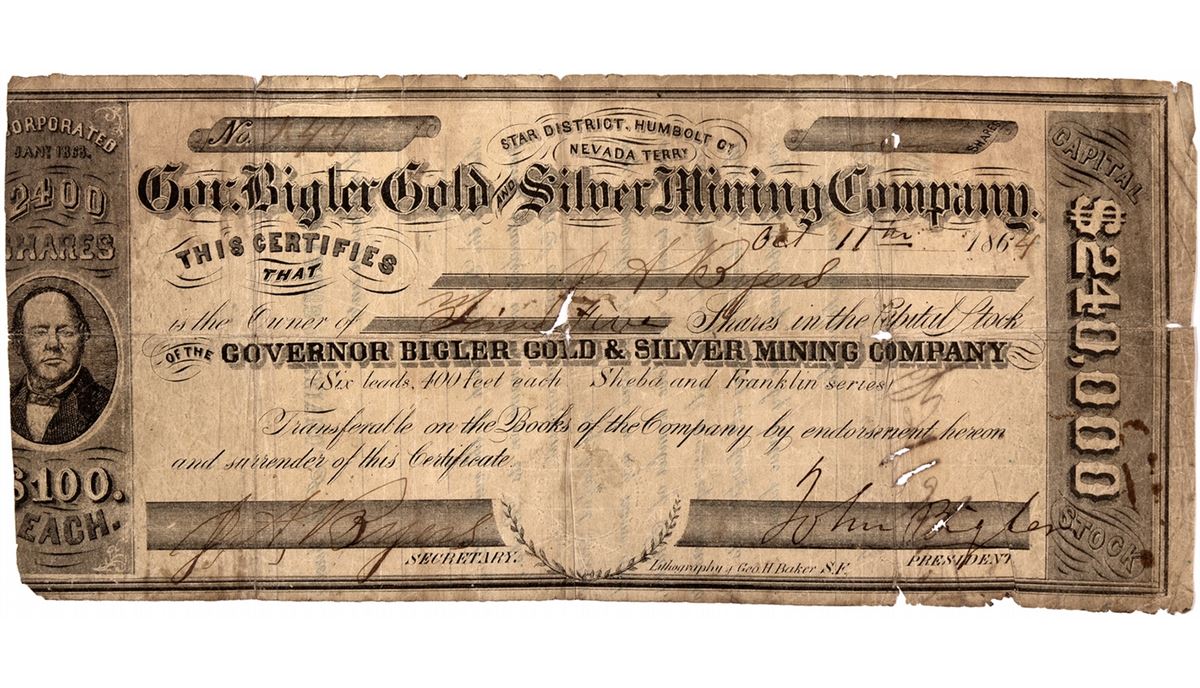 CORPORATED
JANY 1863.
2400
SHARES
$100.
EACH.
No. 144
STAR DISTRICT, HUMBOLT CY
NEVADA TERRY
SHARES
Gov. Bigler Gold AND Silver Mining Company.
Oct 11th 1864
THIS CERTIFIES
THAT
J A Byers
is the Owner of Five Shares in the Capital Stock
OF THE GOVERNOR BIGLER GOLD & SILVER MINING COMPANY
(Six leads, 400 feet each Sheba and Franklin series)
Transferable on the Books of the Company by endorsment hereon
and surrender of this Certificate.
J A Byers
SECRETARY.
John Bigler
PRESIDENT
Lithography of Geo. H. Baker S.F.
CAPITAL
$240,000
STOCK